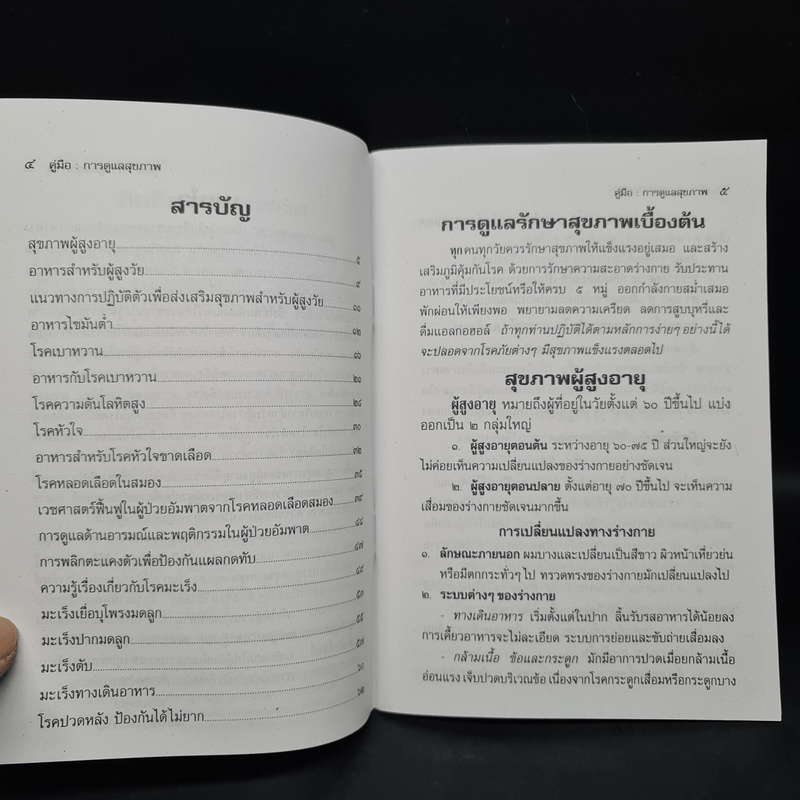 ๔ คู่มือ : การดูแลสุขภาพ
สารบัญ
สุขภาพผู้สูงอายุ ๕
อาหารสำหรับผู้สูงวัย ๙
แนวทางการปฏิบัติตัวเพื่อส่งเสริมสุขภาพสำหรับผู้สูงวัย ๑๑
อาหารไขมันต่ำ ๑๒
โรคเบาหวาน ๑๖
อาหารกับโรคเบาหวาน ๒๑
โรคความดันโลหิตสูง ๒๘
โรคหัวใจ ๓๐
อาหารสำหรับโรคหัวใจขาดเลือด ๓๒
โรคหลอดเลือดในสมอง ๓๕
เวชศาสตร์ฟื้นฟูในผู้ป่วยอัมพาตจากโรคหลอดเลือดสมอง ๓๙
การดูแลด้านอารมณ์และพฤติกรรมในผู้ป่วยอัมพาต ๔๔
การพลิกตะแคงตัวเพื่อป้องกันแผลกดทับ ๔๗
ความรู้เรื่องเกี่ยวกับโรคมะเร็ง ๔๙
มะเร็งเยื่อบุโพรงมดลูก ๕๓
มะเร็งปากมดลูก ๕๕
มะเร็งตับ ๕๗
มะเร็งทางเดินอาหาร ๖๐
โรคปวดหลัง ป้องกันได้ไม่ยาก ๖๒
คู่มือ : การดูแลสุขภาพ ๕
การดูแลรักษาสุขภาพเบื้องต้น
ทุกคนทุกวัยควรรักษาสุขภาพให้แข็งแรงอยู่เสมอ และสร้าง
เสริมภูมิคุ้มกันโรค ด้วยการรักษาความสะอาดร่างกาย รับประทาน
อาหารที่มีประโยชน์หรือให้ครบ ๕ หมู่ ออกกำลังกายสม่ำเสมอ
พักผ่อนให้เพียงพอ พยายามลดความเครียด ลดการสูบบุหรี่และ
ดื่มแอลกอฮอล์ ถ้าทุกท่านปฏิบัติได้ตามหลักการง่ายๆ อย่างนี้ได้
จะปลอดจากโรคภัยต่างๆ มีสุขภาพแข็งแรงตลอดไป
สุขภาพผู้สูงอายุ
ผู้สูงอายุ หมายถึงผู้ที่อยู่ในวัยตั้งแต่ ๖๐ ปีขึ้นไป แบ่ง
ออกเป็น ๒ กลุ่มใหญ่
๑. ผู้สูงอายุตอนต้น ระหว่างอายุ ๖๐-๗๕ ปี ส่วนใหญ่จะยัง
ไม่ค่อยเห็นความเปลี่ยนแปลงของร่างกายอย่างชัดเจน
๒. ผู้สูงอายุตอนปลาย ตั้งแต่อายุ ๗๐ ปีขึ้นไป จะเห็นความ
เสื่อมของร่างกายชัดเจนมากขึ้น
การเปลี่ยนแปลงทางร่างกาย
๑. ลักษณะภายนอก ผมบางและเปลี่ยนเป็นสีขาว ผิวหน้าเหี่ยวย่น
หรือมีตกกระทั่วๆ ไป ทรวดทรงของร่างกายมักเปลี่ยนแปลงไป
๒. ระบบต่างๆ ของร่างกาย
- ทางเดินอาหาร เริ่มตั้งแต่ในปาก ลิ้นรับรสอาหารได้น้อยลง
การเคี้ยวอาหารจะไม่ละเอียด ระบบการย่อยและขับถ่ายเสื่อมลง
- กล้ามเนื้อ ข้อและกระดูก มักมีอาการปวดเมื่อยกล้ามเนื้อ
อ่อนแรง เจ็บปวดบริเวณข้อ เนื่องจากโรคกระดูกเสื่อมหรือกระดูกบาง